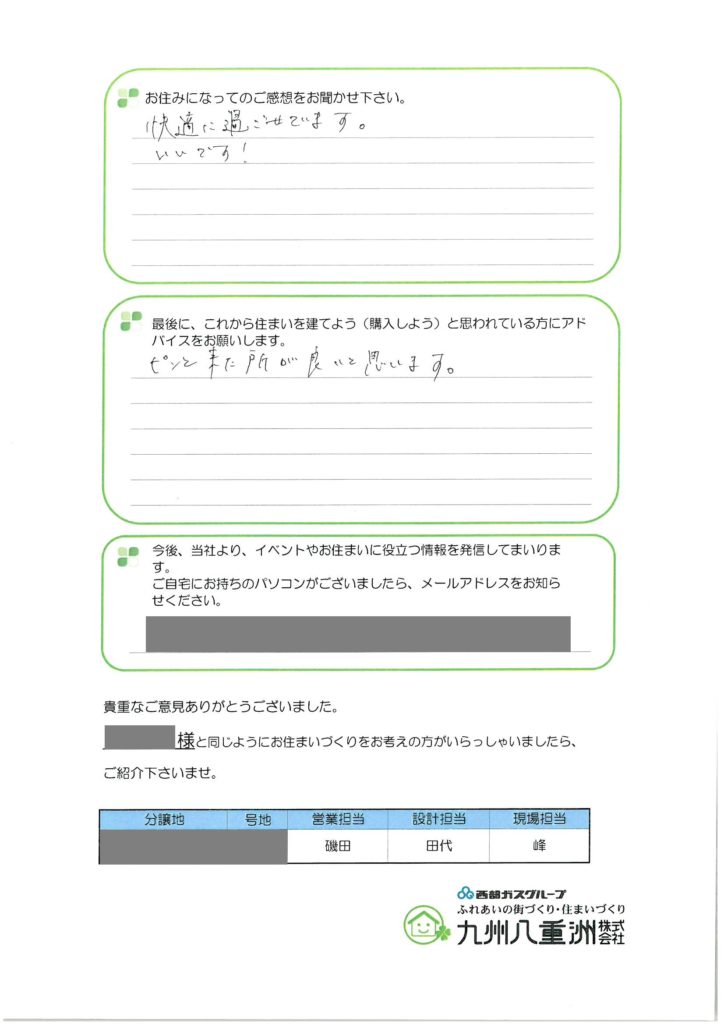 お住みになってのご感想をお聞かせ下さい。
快適に過ごせています。
いいです!
最後に、これから住まいを建てよう（購入しよう）と思われている方にアド
バイスをお願いします。
ピンと来た所が良いと思います。
今後、当社より、イベントやお住まいに役立つ情報を発信してまいりま
す。
ご自宅にお持ちのパソコンがございましたら、メールアドレスをお知ら
せください。
貴重なご意見ありがとうございました。
様と同じようにお住まいづくりをお考えの方がいらっしゃいましたら、
ご紹介下さいませ。
分譲地 号地 営業担当 設計担当 現場担当
磯田 田代 峰
西部ガスグループ
ふれあいの街づくり・住まいづくり
九州八重洲株式会社